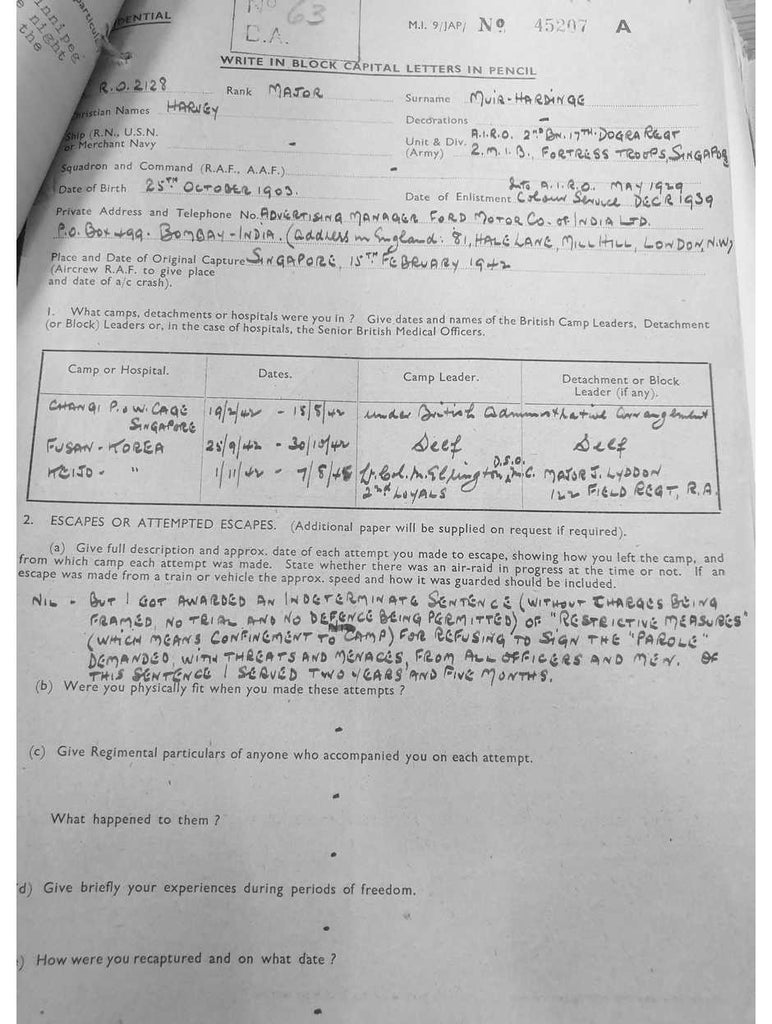 Winnipeg
night
the
particular
DENTIAL
No 63
E.A.
M.I. 9/JAP/ No 45207 A
WRITE IN BLOCK CAPITAL LETTERS IN PENCIL
R.O. 2128 Rank MAJOR Surname MUIR-HARDINGE
hristian Names HARVEY Decorations -
Ship (R.N., U.S.N. or Merchant Navy -
Unit & Div. (Army) A.I.R.O. 2ND BN. 17TH. DOGRA REGT
2. M.I.B., FORTRESS TROOPS, SINGAPORE
Squadron and Command (R.A.F., A.A.F.) -
Date of Birth 25TH OCTOBER 1903. Date of Enlistment A.I.R.O. MAY 1929
Colour Service DECR 1939
Private Address and Telephone No. ADVERTISING MANAGER FORD MOTOR CO. OF INDIA LTD.
P.O. BOX 499. BOMBAY - INDIA. (address in England: 81, HALE LANE, MILL HILL, LONDON, N.W)
Place and Date of Original Capture SINGAPORE, 15TH FEBRUARY 1942
(Aircrew R.A.F. to give place
and date of a/c crash).
1. What camps, detachments or hospitals were you in ? Give dates and names of the British Camp Leaders, Detachment
(or Block) Leaders or, in the case of hospitals, the Senior British Medical Officers.
Camp or Hospital. Dates. Camp Leader. Detachment or Block Leader (if any).
CHANGI P.O.W. CAGE SINGAPORE 19/2/42 - 15/8/42 under British administrative arrangement
FUSAN - KOREA 25/9/42 - 30/10/42 Self Self
KEIJO - " 1/11/42 - 7/8/45 Lt. Col. M. Elrington, D.S.O. M.C. MAJOR J. LYDDON
2nd LOYALS 122 FIELD REGT, R.A.
2. ESCAPES OR ATTEMPTED ESCAPES. (Additional paper will be supplied on request if required).
(a) Give full description and approx. date of each attempt you made to escape, showing how you left the camp, and
from which camp each attempt was made. State whether there was an air-raid in progress at the time or not. If an
escape was made from a train or vehicle the approx. speed and how it was guarded should be included.
NIL - BUT I GOT AWARDED AN INDETERMINATE SENTENCE (WITHOUT CHARGES BEING
FRAMED, NO TRIAL AND NO DEFENCE BEING PERMITTED) OF "RESTRICTIVE MEASURES"
(WHICH MEANS CONFINEMENT TO CAMP) FOR REFUSING TO SIGN THE "PAROLE"
DEMANDED, WITH THREATS AND MENACES, FROM ALL OFFICERS AND MEN. OF
THIS SENTENCE I SERVED TWO YEARS AND FIVE MONTHS.
(b) Were you physically fit when you made these attempts ?
-
(c) Give Regimental particulars of anyone who accompanied you on each attempt.
-
What happened to them ?
-
d) Give briefly your experiences during periods of freedom.
-
) How were you recaptured and on what date ?
-